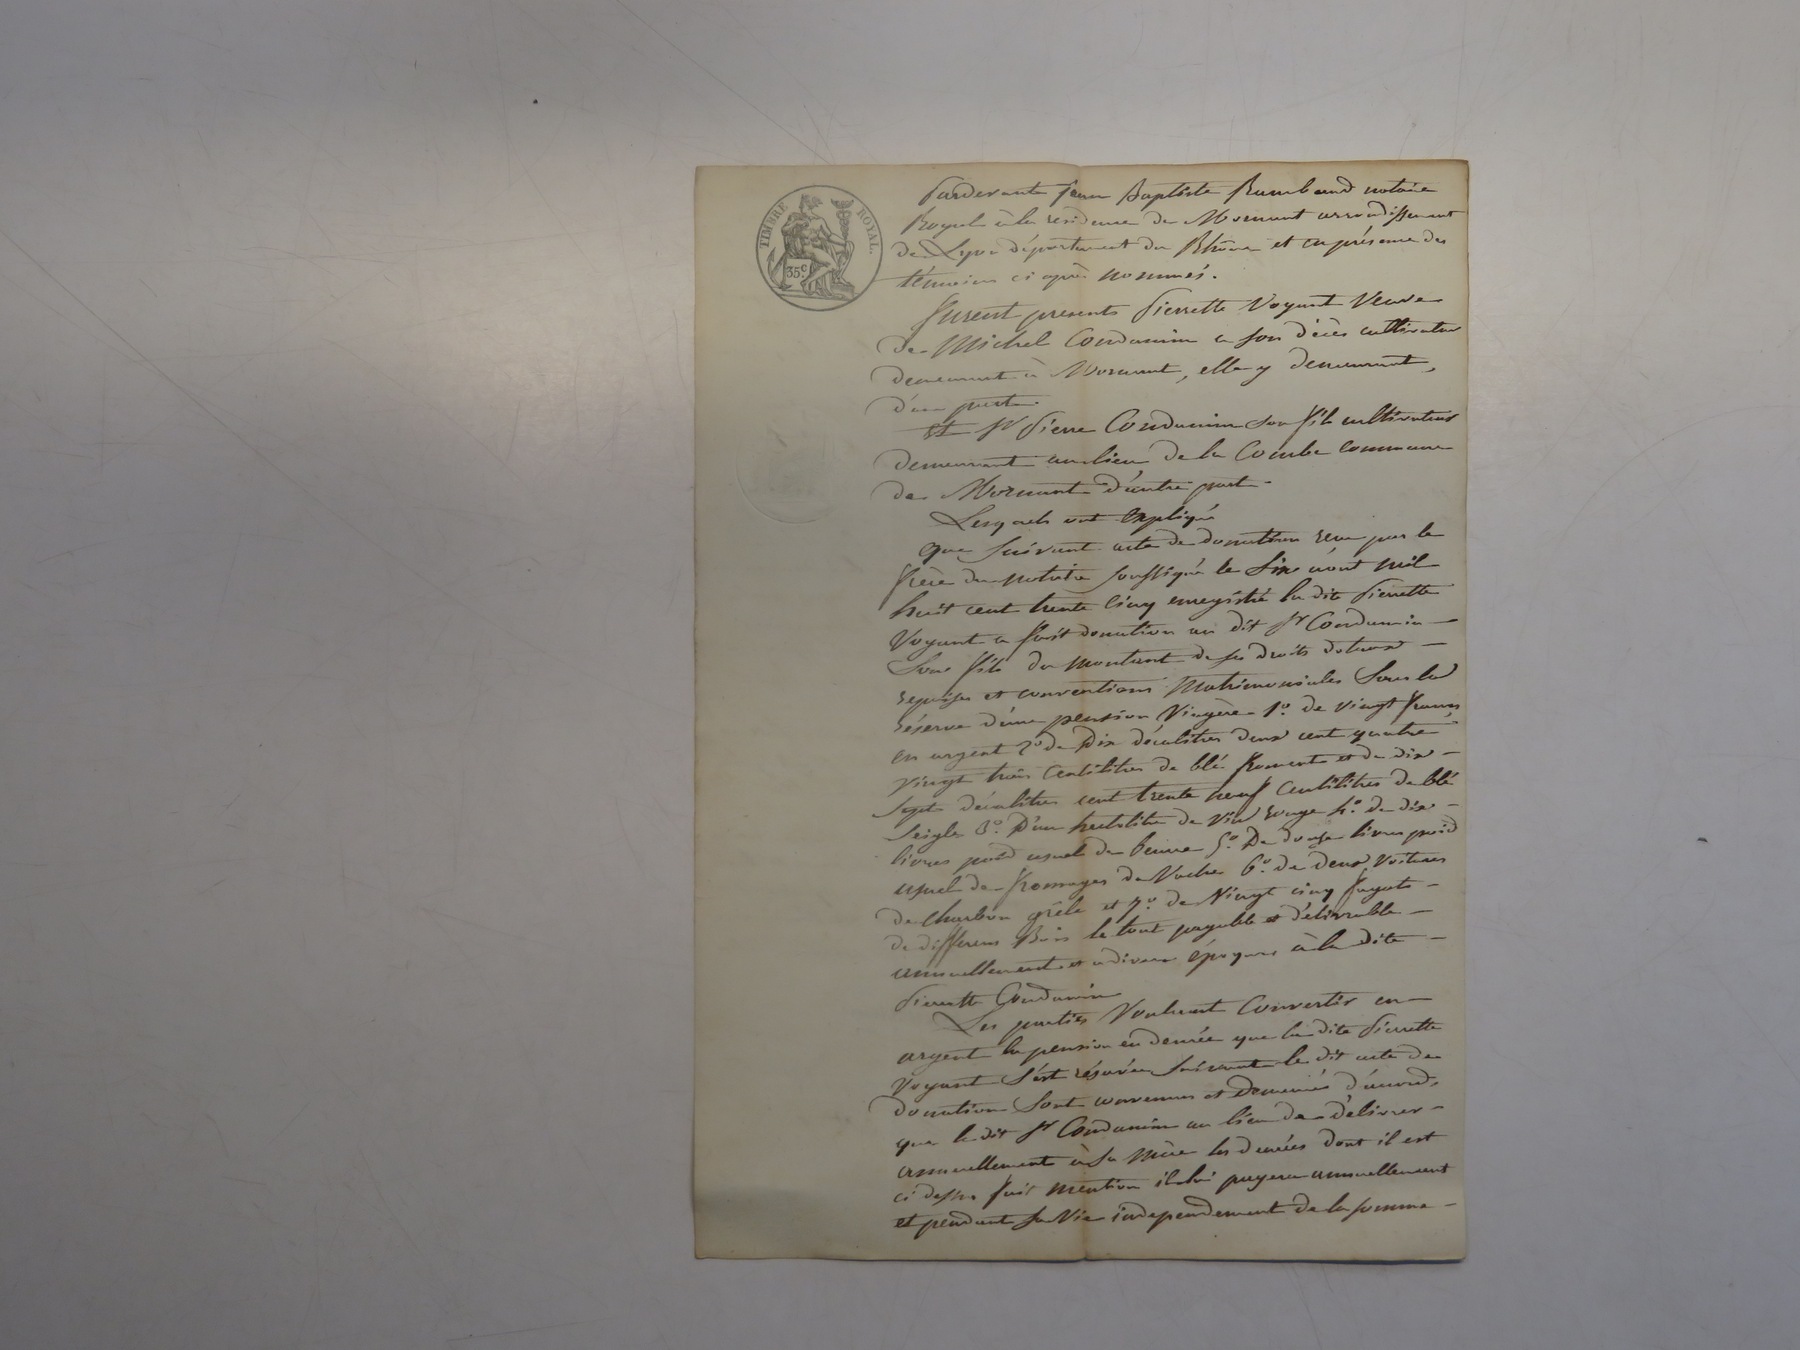 TIMBRE ROYAL.
35c
Pardevant Jean Baptiste Rambaud notaire
Royal à la résidence de Mornant arrondissement
de Lyon département du Rhône et en présence des
témoins ci après nommés.
Furent presents Pierrette Voyant Veuve
de Michel Condamin a son décès cultivateur
demeurant à Mornant, elle y demeurant,
d'une part.
Et Sr Pierre Condamin son fils cultivateur
demeurant au lieu de la Combe commune
de Mornant d'autre part.
Lesquels ont Expliqué
Que suivant acte de donation reçu par le
frère du notaire soussigné le six août mil
huit cent trente cinq enregistré la dite Pierrette
Voyant a fait donation au dit Sr Condamin
Son fils du montant de ses droits dotaux
reprises et conventions Matrimoniales Sous la
réserve d'une pension Viagère 1o. de vingt francs
en argent 2o de Dix décalitres deux cent quatre
vingt trois Centilitres de blé froment et de dix
sept décalitres cent trente neuf Centilitres de blé
Seigle 3o. D'un hectolitre de Vin rouge 4o. de dix
livres poid usuel de beurre 5o. De douze livres poid
usuel de fromages de Vache 6o. de deux Voitures
de Charbon grêle et 7o. de Vingt cinq fagots
de differens Bois le tout payable et délivrable
annuellement et a divers époques à la dite
Pierrette Condamin
Les parties Voulant Convertir en
argent la pension en denrée que la dite Pierrette
Voyant s'est réservée Suivant le dit acte de
donation Sont convenues et Demeurées d'accord
que le dit Sr Condamin au lieu de délivrer
annuellement à sa Mère les denrées dont il est
ci dessus fait mention il lui payera annuellement
et pendant sa Vie independement de la somme